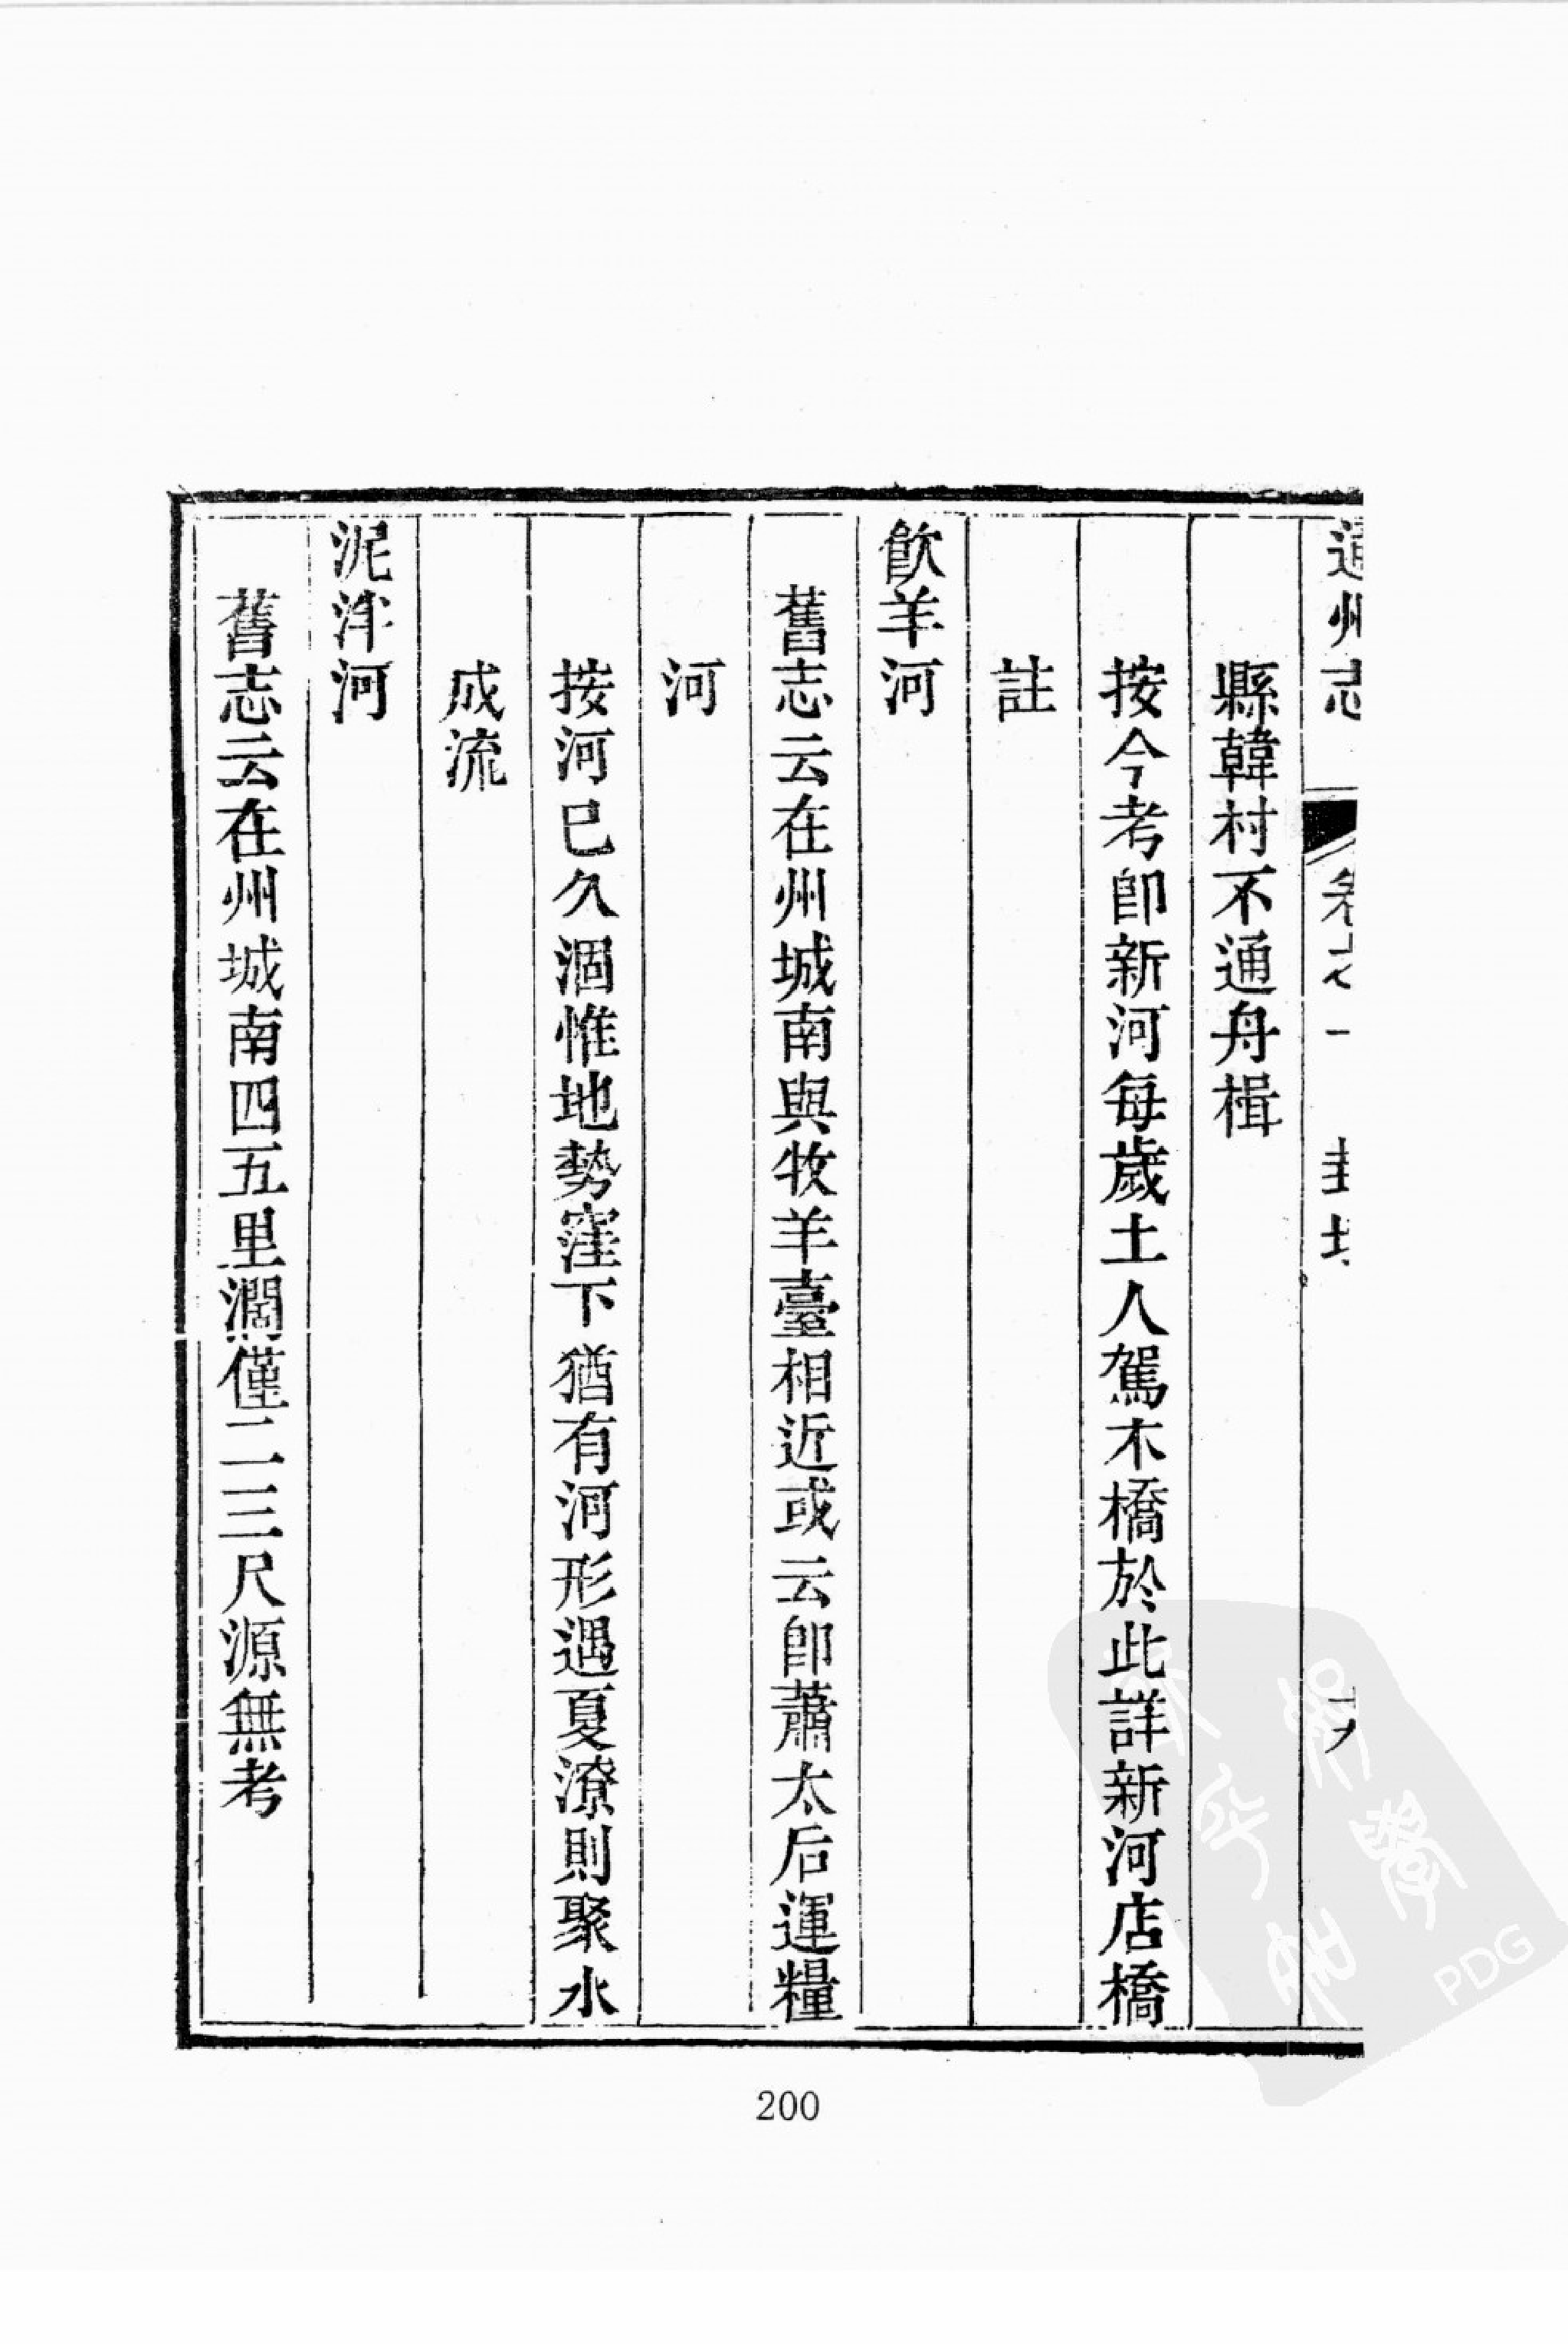 通州志 卷之一 封域 九
縣韓村不通舟楫
按今考卽新河每歲土人駕木橋於此詳新河店橋
註
飲羊河
舊志云在州城南與牧羊臺相近或云卽蕭太后運糧
河
按河已久涸惟地勢窪下猶有河形遇夏潦則聚水
成流
泥洋河
舊志云在州城南四五里濶僅二三尺源無考
200
PDG